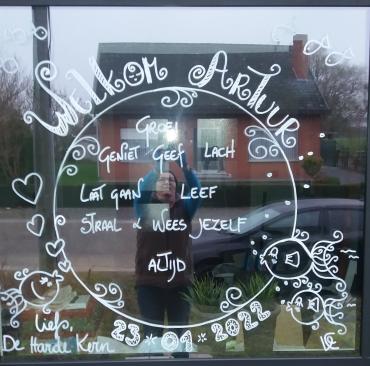 Welkom Artuur
Groei
Geniet Geef Lach
Laat gaan Leef
Straal & Wees jezelf
Altijd
Liefs,
De Harde Kern
23*01*2022